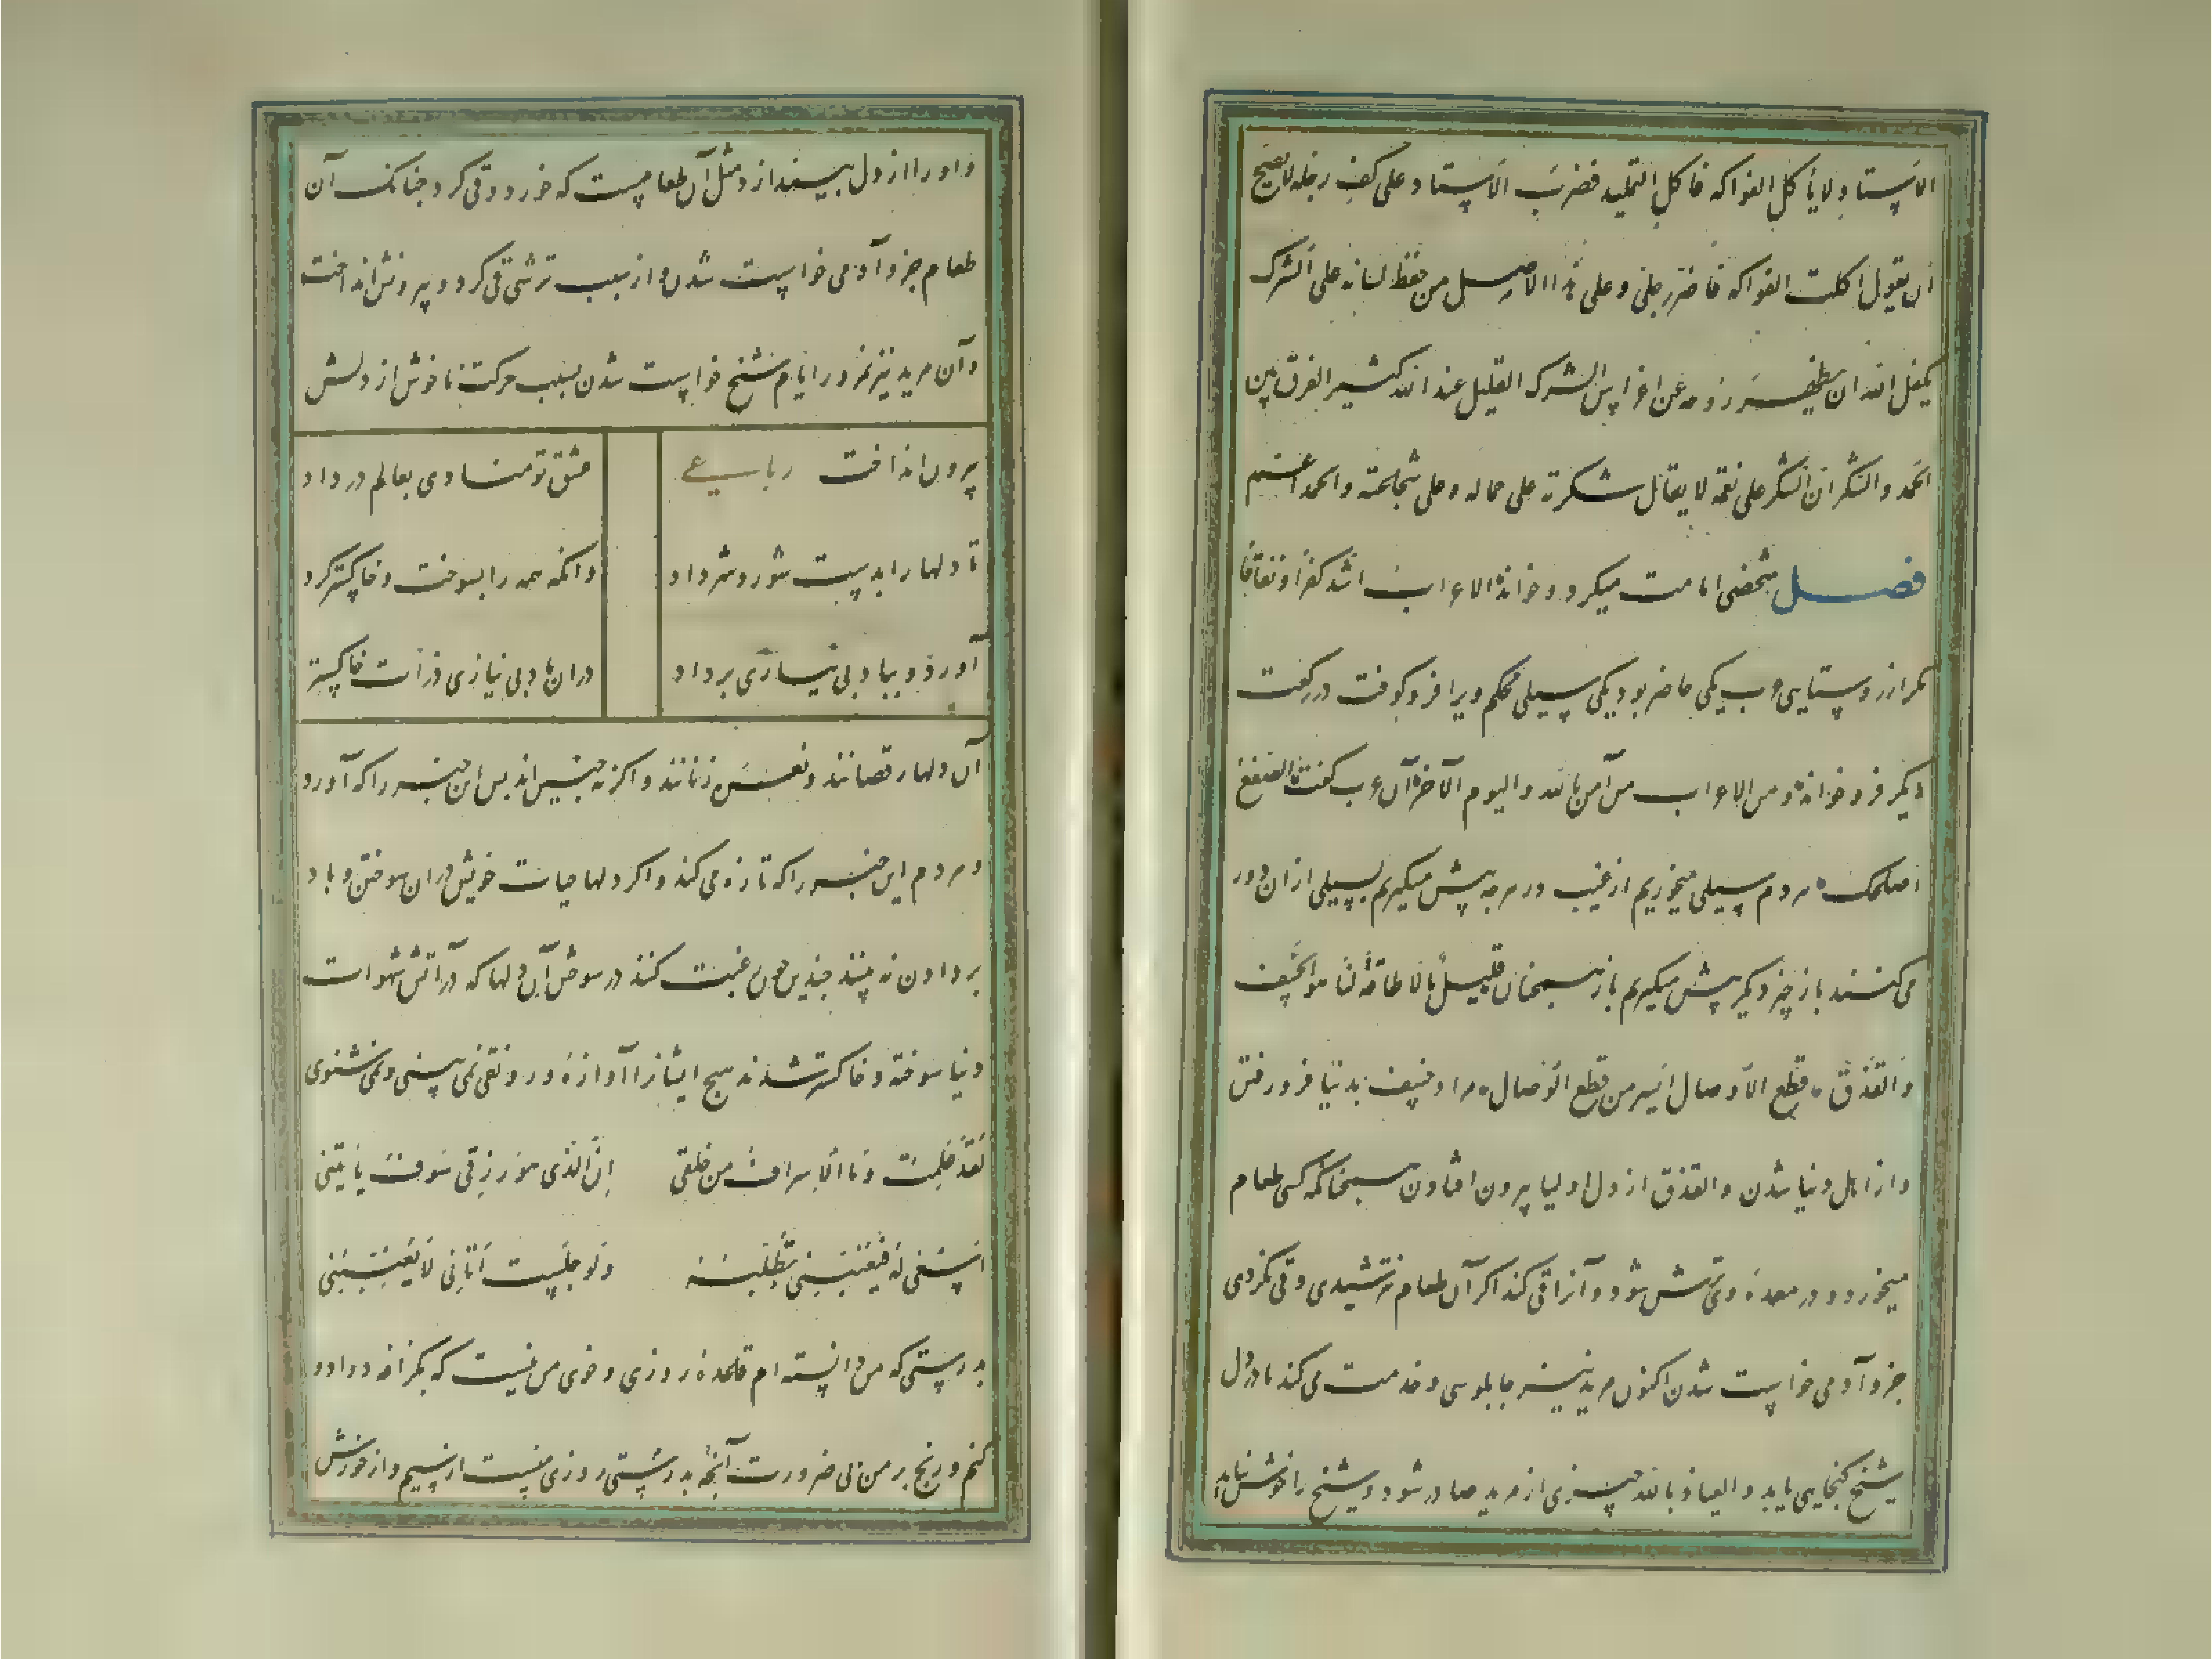 الاستاد لا یأکل الفواکه فاکل التلمیذ فضرب الاستاد علی کف رجله لا یصح
ان یقول اکلت الفواکه فاضر رجلی و علی هذا الاصل من حفظ لسانه علی الشرک
یکفل الله ان یطهر روحه عن اغراس الشرک القلیل عند الله کثیر الفرق بین
الحمد والشکر ان الشکر علی نعمة لا یقال شکرته علی جماله و علی شجاعته والحمد اعم
فصل شخصی امامت میکرد و خواند الاعراب اشد کفرا و نفاقا
مکر از روستایی عرب یکی حاضر بود یکی سیلی محکم ویرا فرو کوفت در رکعت
دیکر فرو خواند و من الاعراب من آمن بالله و الیوم الآخر آن عرب کفت الصفع
اصلحک مردم سیلی میخوریم از غیب در هرچه پیش میکیریم بسیلی ازان دور
می کنند باز چیز دیکر پیش میکیریم باز همچنان قیل لا طاقة لنا هو الخسف
والقذف قطع الاوصال ایسر من قطع الوصال مراد خسف بدنیا فرو رفتن
و از اهل دنیا شدن والقذف از دل اولیا بیرون افتادن همچنانکه کسی طعام
میخورد و در معده وی ترش شود و آنرا قی کند اکر آن طعام نترشیدی و قی نکردی
جزو آدمی خواست شدن اکنون مرید نیز چابلوسی و خدمت می کند تا در دل
شیخ کنجایی یابد و العیاذ بالله چیزی از مرید صادر شود و شیخ را خوش نیاید
و او را از دل بیندازد مثل آن طعامیست که خورد و قی کرد چنانک آن
طعام جزو آدمی خواست شدن و از سبب ترشی قی کرد و بیرونش انداخت
و آن مرید نیز بمرور ایام شیخ خواست شدن بسبب حرکت ناخوش از دلش
بیرون انداخت رباعی عشق تو منادی بعالم در داد
تا دلها را بدست شور و شر داد وانکه همه را بسوخت و خاکستر کرد
آورد و بباد بی نیازی برداد دران باد بی نیازی ذرات خاکستر
آن دلها رقصانند و نعره زنانند و اکر نه چنین اند بس این خبر را که آورد
و مردم این خبر را که تازه می کند و اکر دلها حیات خویش دران سوختن و باد
بردادن نه بینند چندین چون رغبت کنند در سوختن آن دلها که در آتش شهوات
دنیا سوخته و خاکستر شدند هیچ ایشانرا آوازه و رونقی می بینی و می شنوی
لقد علمت و ما الاسراف من خلقی ان الذی هو رزقی سوف یاتینی
اسعی له فیعنینی تطلبه ولو جلست اتانی لا یعنینی
بدرستی که من دانسته ام قاعدهٔ روزی و خوی من نیست که بکزافه دوادو
کنم و رنج برم بی ضرورت آنچه بدرستی روزی منست از سیم و از خورش